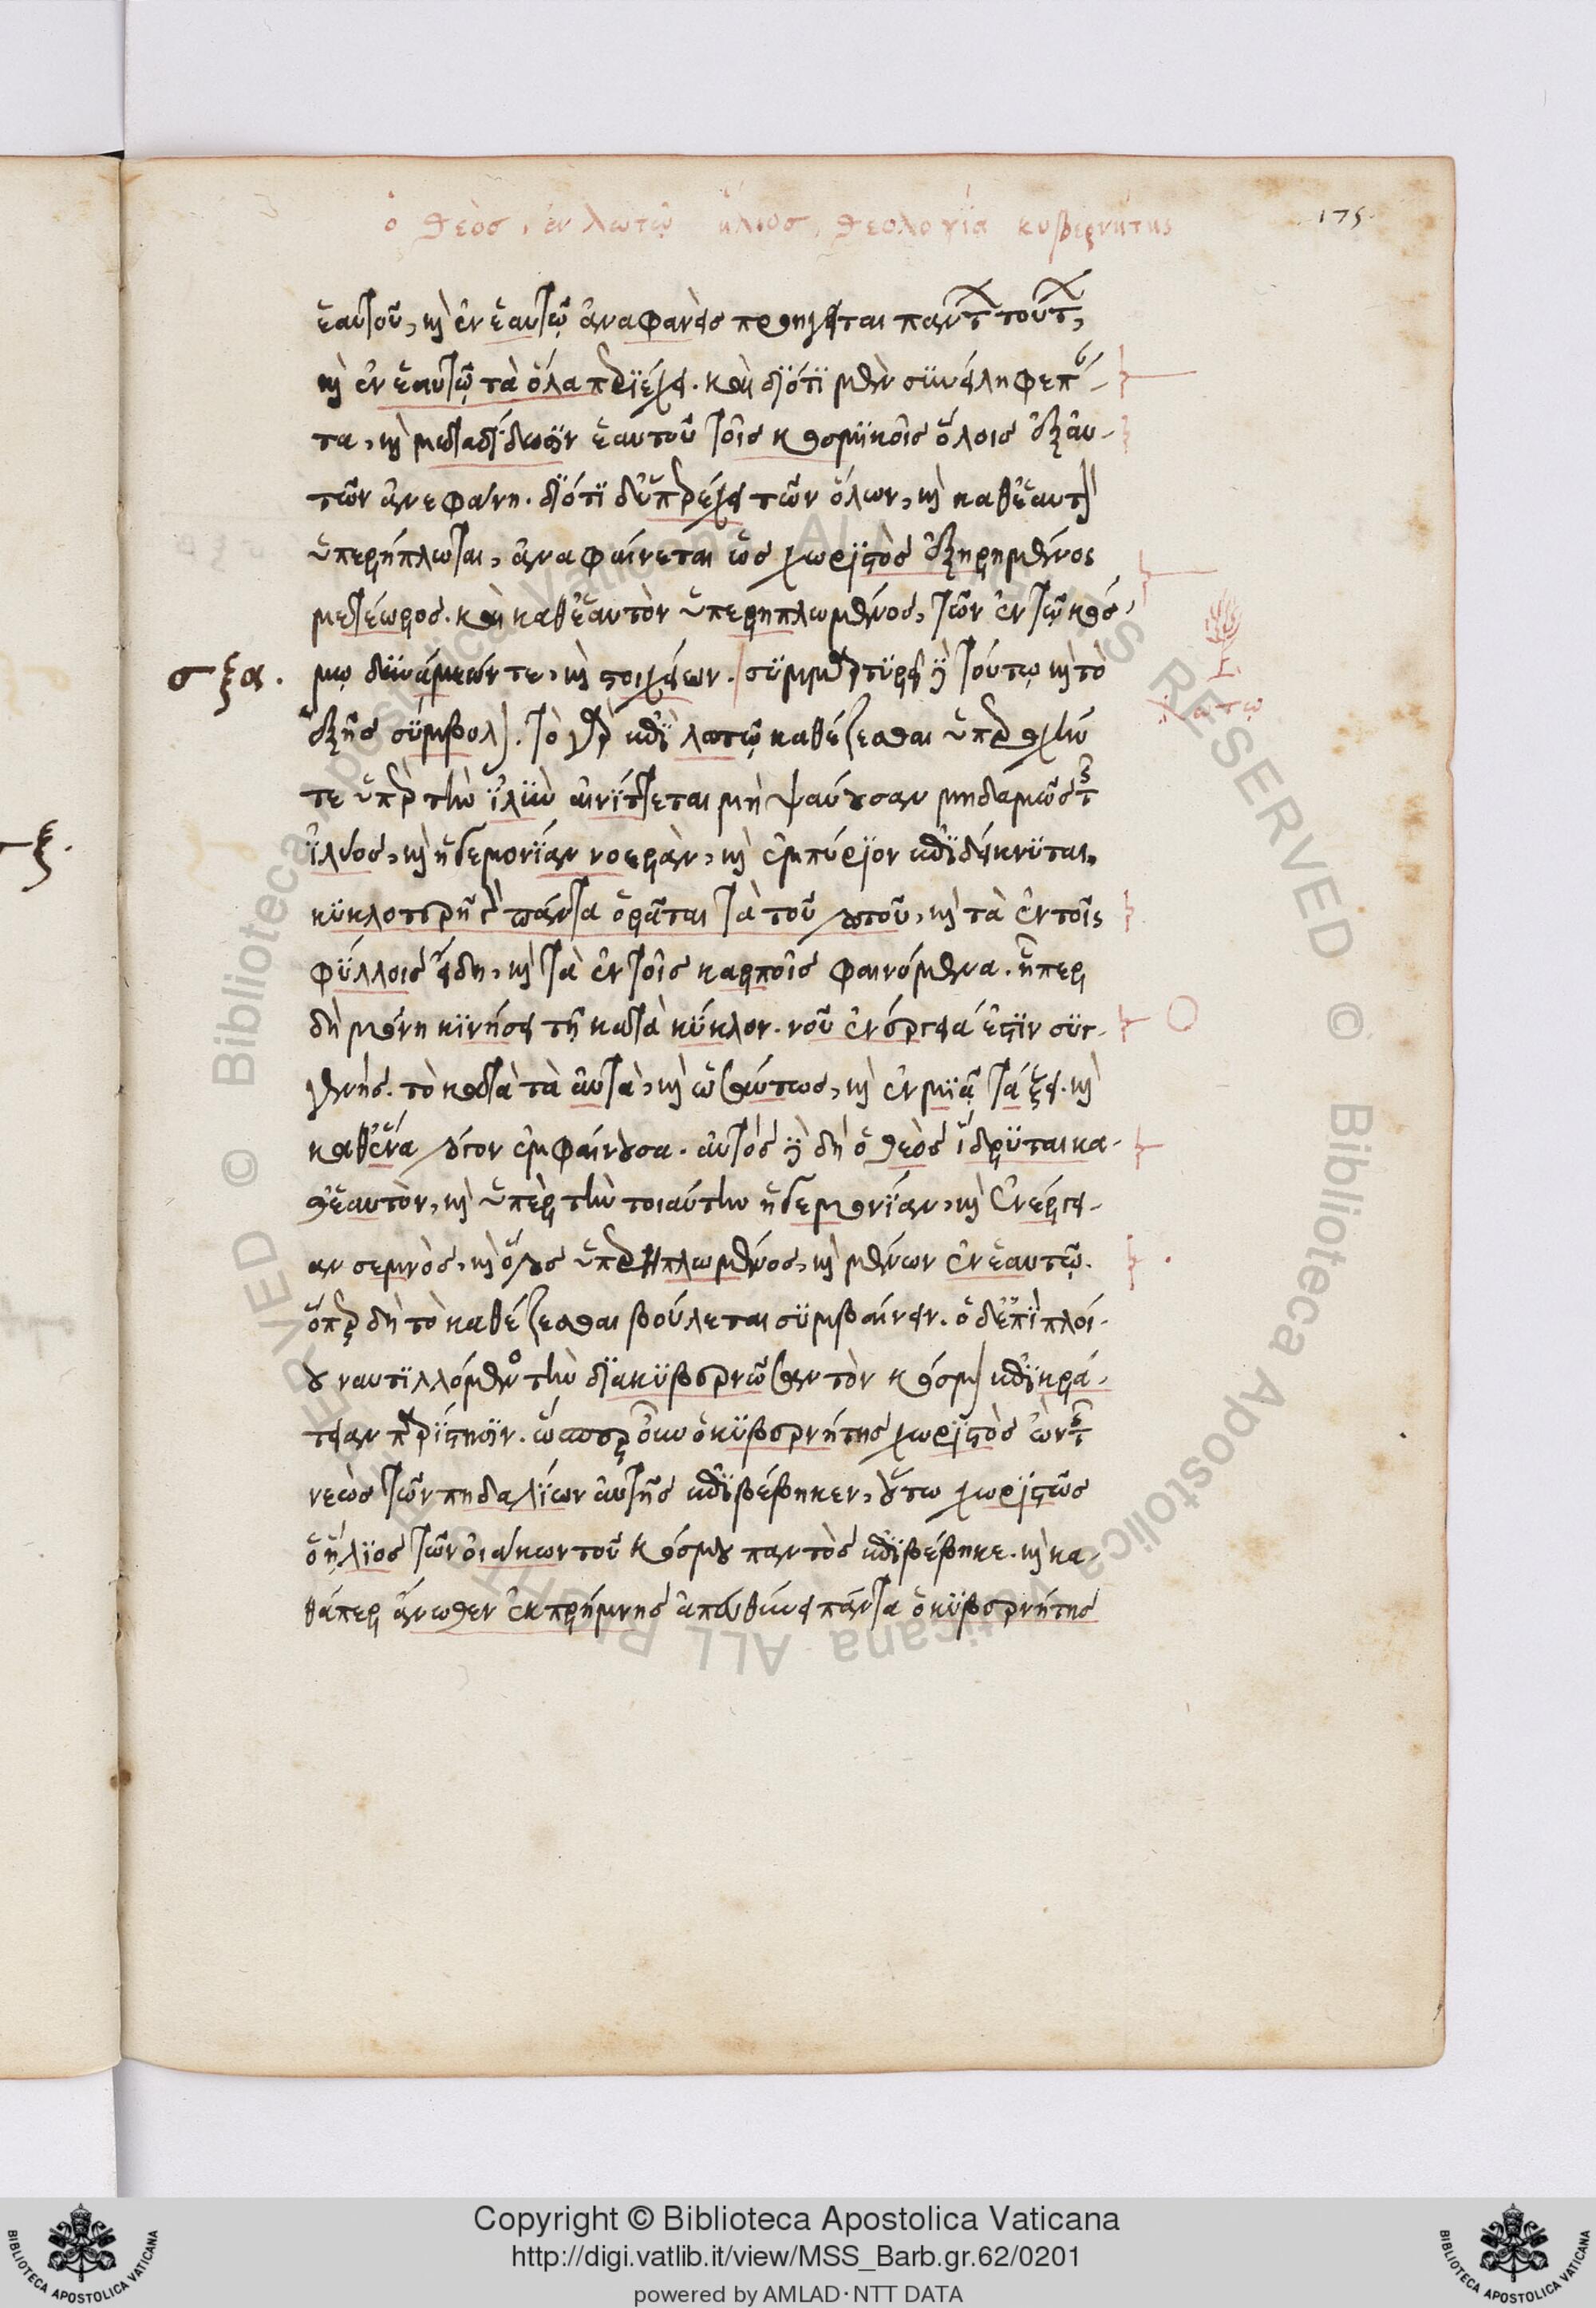 ὁ θεὸσ, ἐν λωτῶ ἥλιοσ, θεολογία κυβερνήτης
175.
ἑαυτοῦ, κὶ ἐν ἑαυτῶ ἀναφανεὶσ προηγεῖται παντ τουτ,
κὶ ἐν ἑαυτῶ τὰ ὅλα περϊέχει. καὶ διότϊ μὲν συνείληφε πάν-
τα, κὶ μεταδίδωσιν ἑαυτοῦ τοῖσ κοσμϊκοῖσ ὅλοισ ἐξ αὐ-
τῶν ἀνεφάνη. διότϊ δὲ ὑπερέχει τῶν ὅλων, κὶ καθ' ἑαυτὸν
ὑπερήπλωται, ἀναφαίνεται ὡσ χωριστὸσ ἐξηρημένος
μετέωρος. καὶ καθ' ἑαυτὸν ὑπερηπλωμένος, τῶν ἐν τῶ κόσ-
σξα.
μω δυνάμεών τε, κὶ στοιχείων. συμμαρτυρεῖ δὲ τούτω κὶ τὸ
ἑξῆσ σύμβολον. τὸ γὰρ ἐπὶ λωτῶ καθέζεσθαι ὑπεροχήν
λωτῶ
τε ὑπὲρ τὴν ἰλὺν αἰνίττεται μὴ ψαύουσαν μηδαμῶσ τ
ἰλύος, κὶ ἡγεμονίαν νοερὰν, κὶ ἐμπύριον ἐπιδείκνυται.
κυκλοτερῆ γὰρ πάντα ὁρᾶται τὰ τοῦ λωτοῦ, κὶ τὰ ἐν τοῖς
φύλλοισ εἴδη, κὶ τὰ ἐν τοῖσ καρποῖσ φαινόμενα. ᾗπερ
δὴ μόνη κινήσει τῇ κατὰ κύκλον νοῦ ἐνέργειά ἐστιν συγ-
γενήσ. τὸ κατὰ τὰ αὐτὰ, κὶ ὡσαύτωσ, κὶ ἐν μιᾷ τάξει κὶ
καθ' ἕνα λόγον ἐμφαίνουσα. αὐτὸσ δὲ δὴ ὁ θεὸσ ἵδρυται κα-
θ' ἑαυτὸν, κὶ ὑπὲρ τὴν τοιαύτην ἡγεμονίαν, κὶ ἐνέργει-
αν σεμνὸσ, κὶ ἅγιοσ ὑπερηπλωμένοσ, κὶ μένων ἐν ἑαυτῶ.
ὅπερ δὴ τὸ καθέζεσθαι βούλεται συμβαίνειν. ὁ δ' ἐπὶ πλοί-
ου ναυτιλλόμενος τὴν διακυβερνῶσαν τὸν κόσμον ἐπικρά-
τειαν παρίστησιν. ὥσπερ οὖν ὁ κυβερνήτησ χωριστὸσ ὢν τ
νεὼσ τῶν πηδαλίων αὐτῆσ ἐπιβέβηκεν, οὕτω χωριστῶσ
ὁ ἥλιοσ τῶν οἰάκων τοῦ κόσμου παντὸσ ἐπιβέβηκε. κὶ κα-
θάπερ ἄνωθεν ἐκ πρήμνησ ἀπευθύνει πάντα ὁ κυβερνήτησ
Copyright © Biblioteca Apostolica Vaticana
http://digi.vatlib.it/view/MSS_Barb.gr.62/0201
powered by AMLAD·NTT DATA
BIBLIOTECA APOSTOLICA VATICANA
BIBLIOTECA APOSTOLICA VATICANA